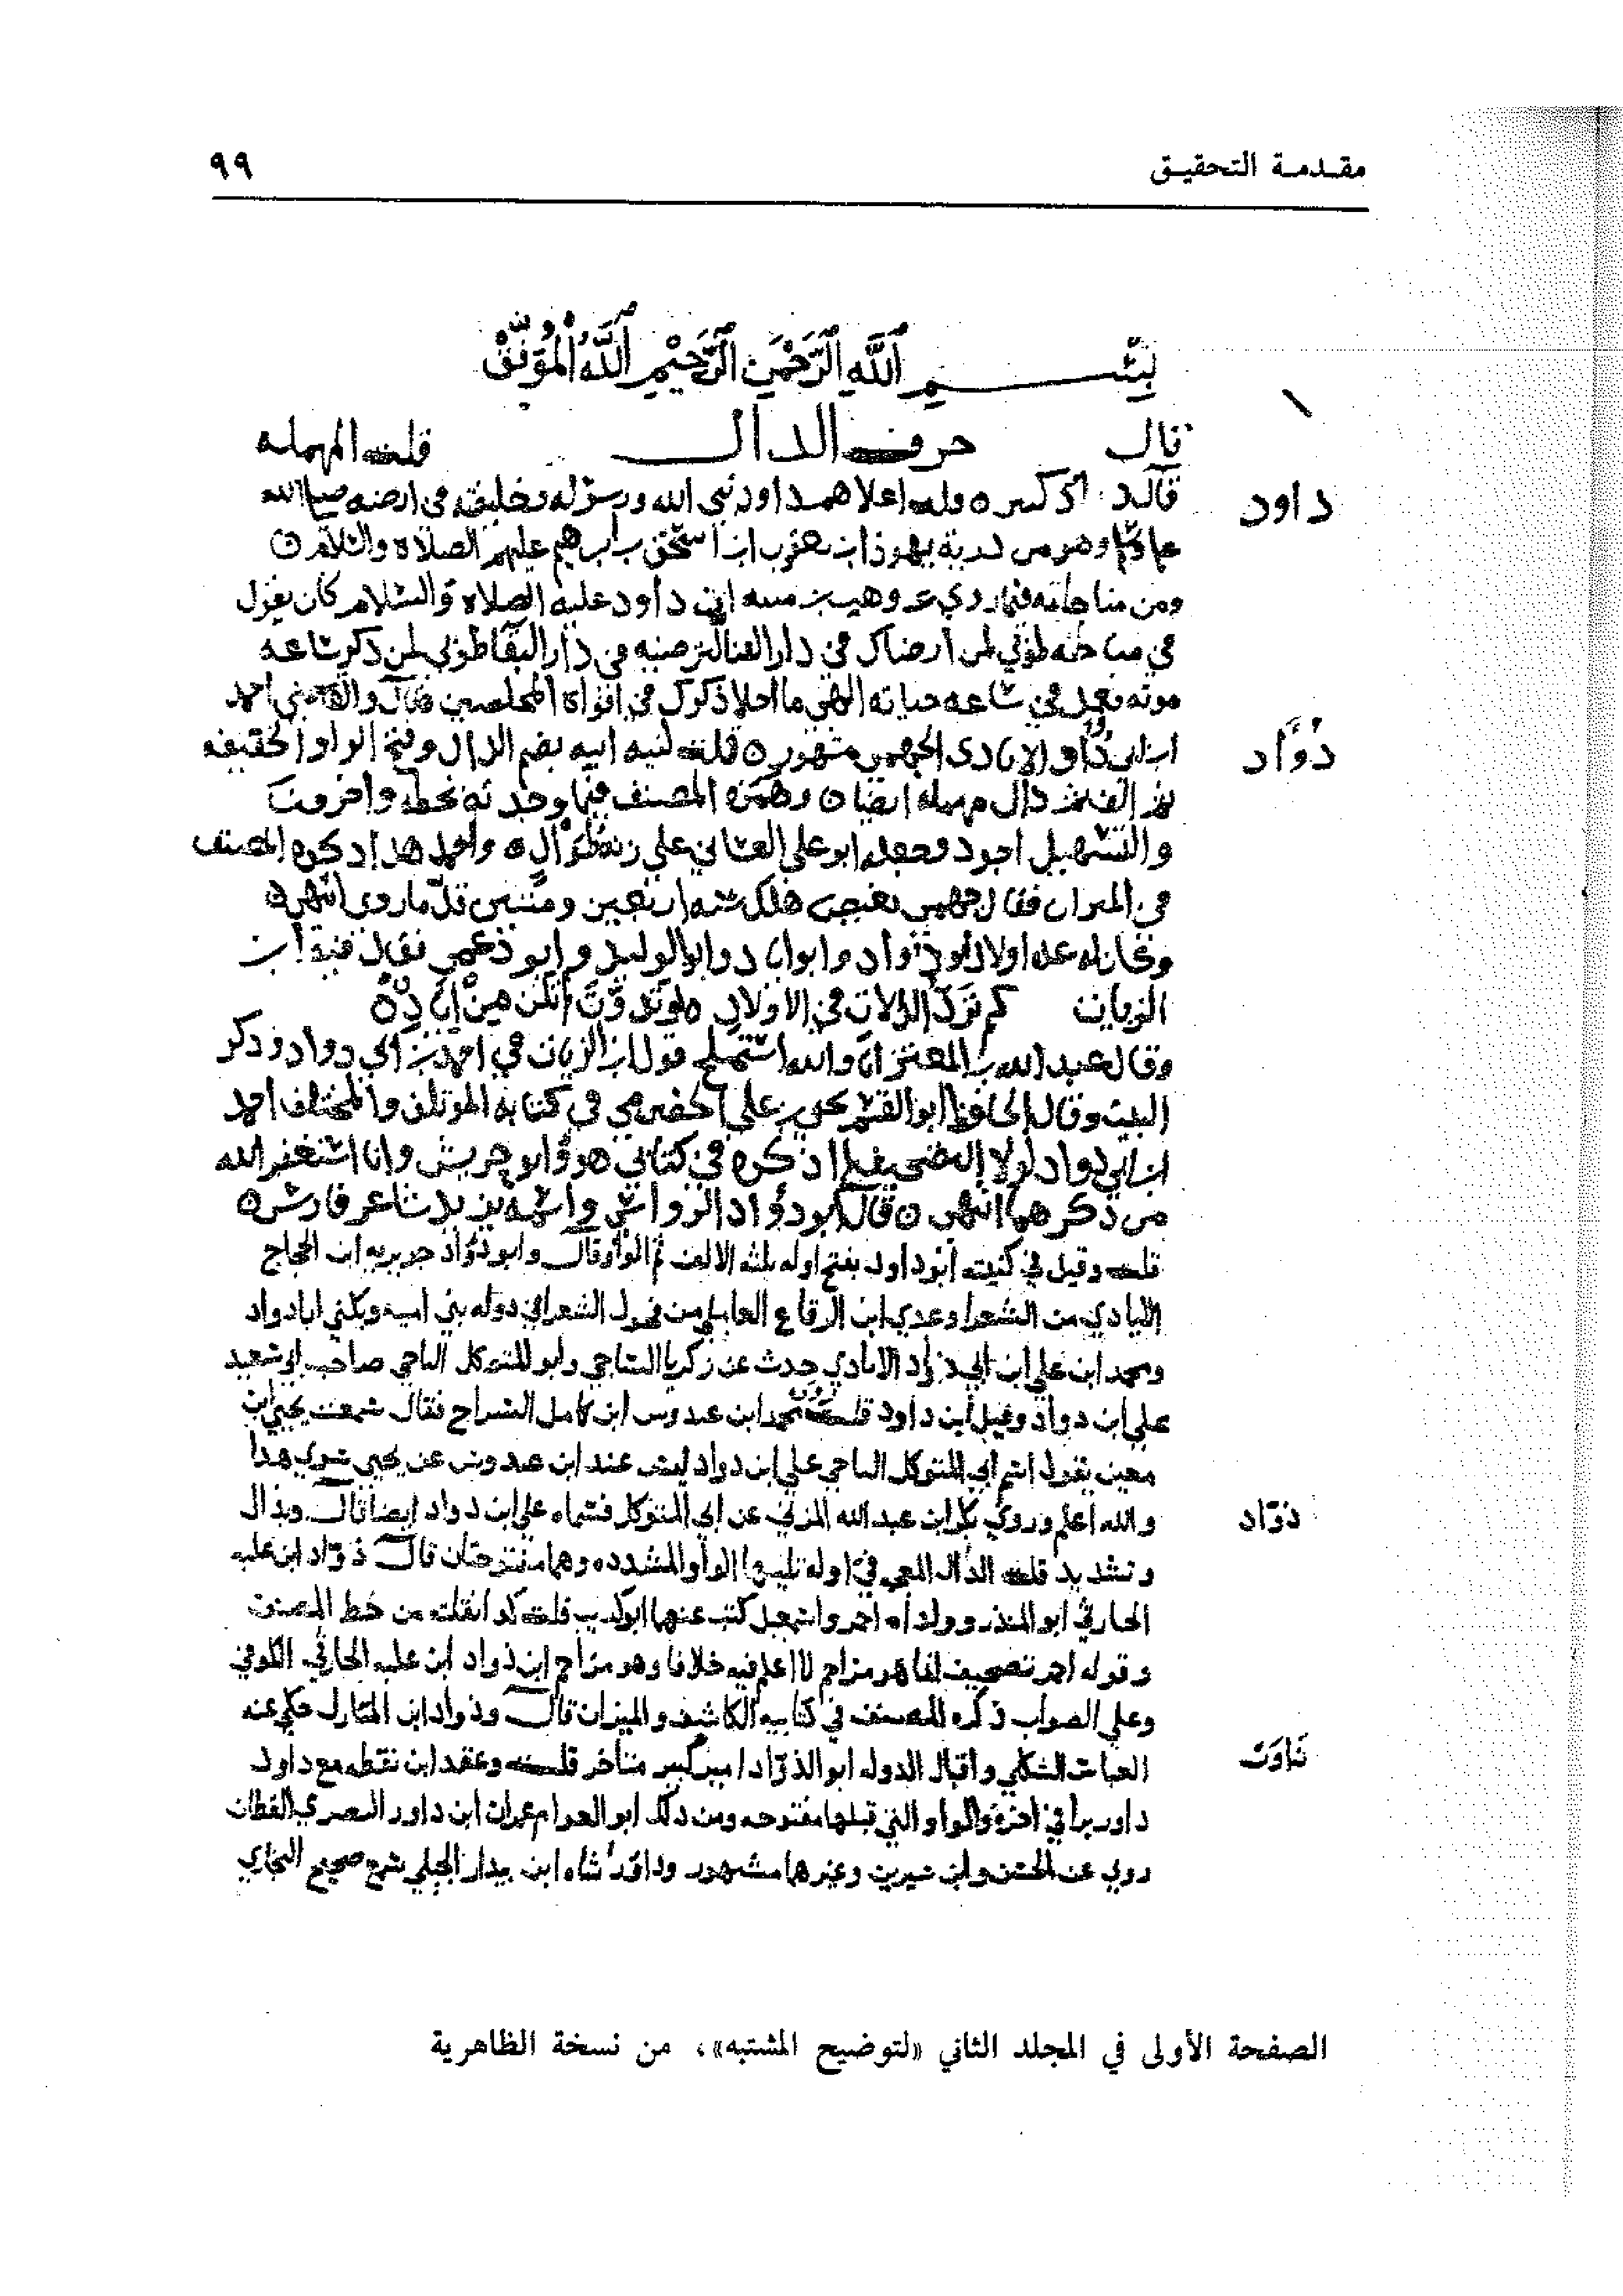 مقدمة التحقيق ٩٩
بِسْمِ اللَّهِ الرَّحْمَنِ الرَّحِيْمِ اللَّهُ الْمُوَفِّقُ
قال حرف الدال قلت المهملة
داود
قال د كثير ه قلت اعلاهم داود نبي الله ورسوله وخليفته في ارضه صلى الله
وهو من ذرية يهوذا ابن يعقوب ابن اسحق بن ابرهيم عليهم الصلاة والسلام ه
ومن مناجاته فيما روي عن وهب بن منبه ان داود عليه الصلاة والسلام كان يقول
في مناجاته طوبى لمن ارضاك في دار الفنا لترضيه في دار البقا طوبى لمن ذكر ساعة
موته فعمل في ساعة حياته الهي ما احلا ذكرك في افواه المخلصين قال والقاضي احمد
دُوَاد
ابن ابي دواد الايادي الجهمي مشهور ه قلت كنية ابيه بضم الدال وفتح الواو الخفيفة
ثم الف ثم دال مهملة ايضا ه وهمزه المصنف فيما وجدته بخطه واخرون
والتسهيل اجود وجعله ابو علي الغساني على زنة سؤال ه واحمد هذا ذكره المصنف
في الميزان فقال جهمي بغيض هلك سنة اربعين ومئتين قل ما روى انتهى ه
وكان له عدة اولاد ابو دواد وابو اياد وابو الوليد وابو دعمي فقال فيه ابن
الزيات
وقال عبد الله بن المعتز انا والله استملح قول ابن الزيات في احمد بن ابي دواد وذكر
البيت وقال الحافظ ابو القسم يحيى بن علي الحضرمي في كتابه الموتلف والمختلف احمد
ابن ابي دواد لولا التصحيف لما اذكره في كتابي هو وابو جريش وانا استغفر الله
من ذكرهما انتهى ه قال ابو دؤاد الرواسي واسمه يزيد شاعر فارس ه
قلت وقيل في كنيته ابو داود بفتح اوله ثلثه الالف ثم الواو قال وابو دؤاد جويرية ابن الحجاج
الايادي من الشعرا وعدي ابن الرقاع العاملي من فحول الشعرا في دولة بني امية ويكنى ابا دواد
ومحمد ابن علي ابن ابي دؤاد الايادي حدث عن زكريا الساجي وابو المتوكل الناجي صاحب ابي سعيد
علي ابن دواد وقيل ابن داود قلت محمد ابن عبدوس ابن كامل السراج فقال سمعت يحيى ابن
معين يقول اسم ابي المتوكل الناجي علي ابن دواد ليس عند ابن عبدوس عن يحيى سوى هذا
والله اعلم وروى بكر ابن عبد الله المزني عن ابي المتوكل فسماه علي ابن دواد ايضا قال وبذال
ذوّاد
وتشديد قلت الذال المعجمة في اوله تليها الواو المشددة وهما مفتوحتان قال ذوّاد ابن علبة
الحارثي ابو المنذر وولداه احمر واسمعيل كتب عنهما ابو كريب قلت كذا نقلته من خط المصنف
وقوله احمر تصحيف انما هو مزاحم لا اعلم فيه خلافا وهو مزاحم ابن ذواد ابن علبة الحارثي الكوفي
وعلى الصواب ذكره المصنف في كتابيه الكاشف والميزان قال وذواد ابن المبارك حكى عنه
داوَر
العباس الشكلي واقبال الدولة ابو الذوّاد امير كبير متاخر قلت وعقد ابن نقطة مع داود
داور برا في اخره والواو التي قبلها مفتوحة ومن ذلك ابو العوام عمران ابن داور البصري القطان
روى عن الحسن وابن سيرين وغيرهما مشهور وداوَر شاه ابن بندار الجبلي سمع صحيح البخاري
الصفحة الأولى في المجلد الثاني «لتوضيح المشتبه»، من نسخة الظاهرية